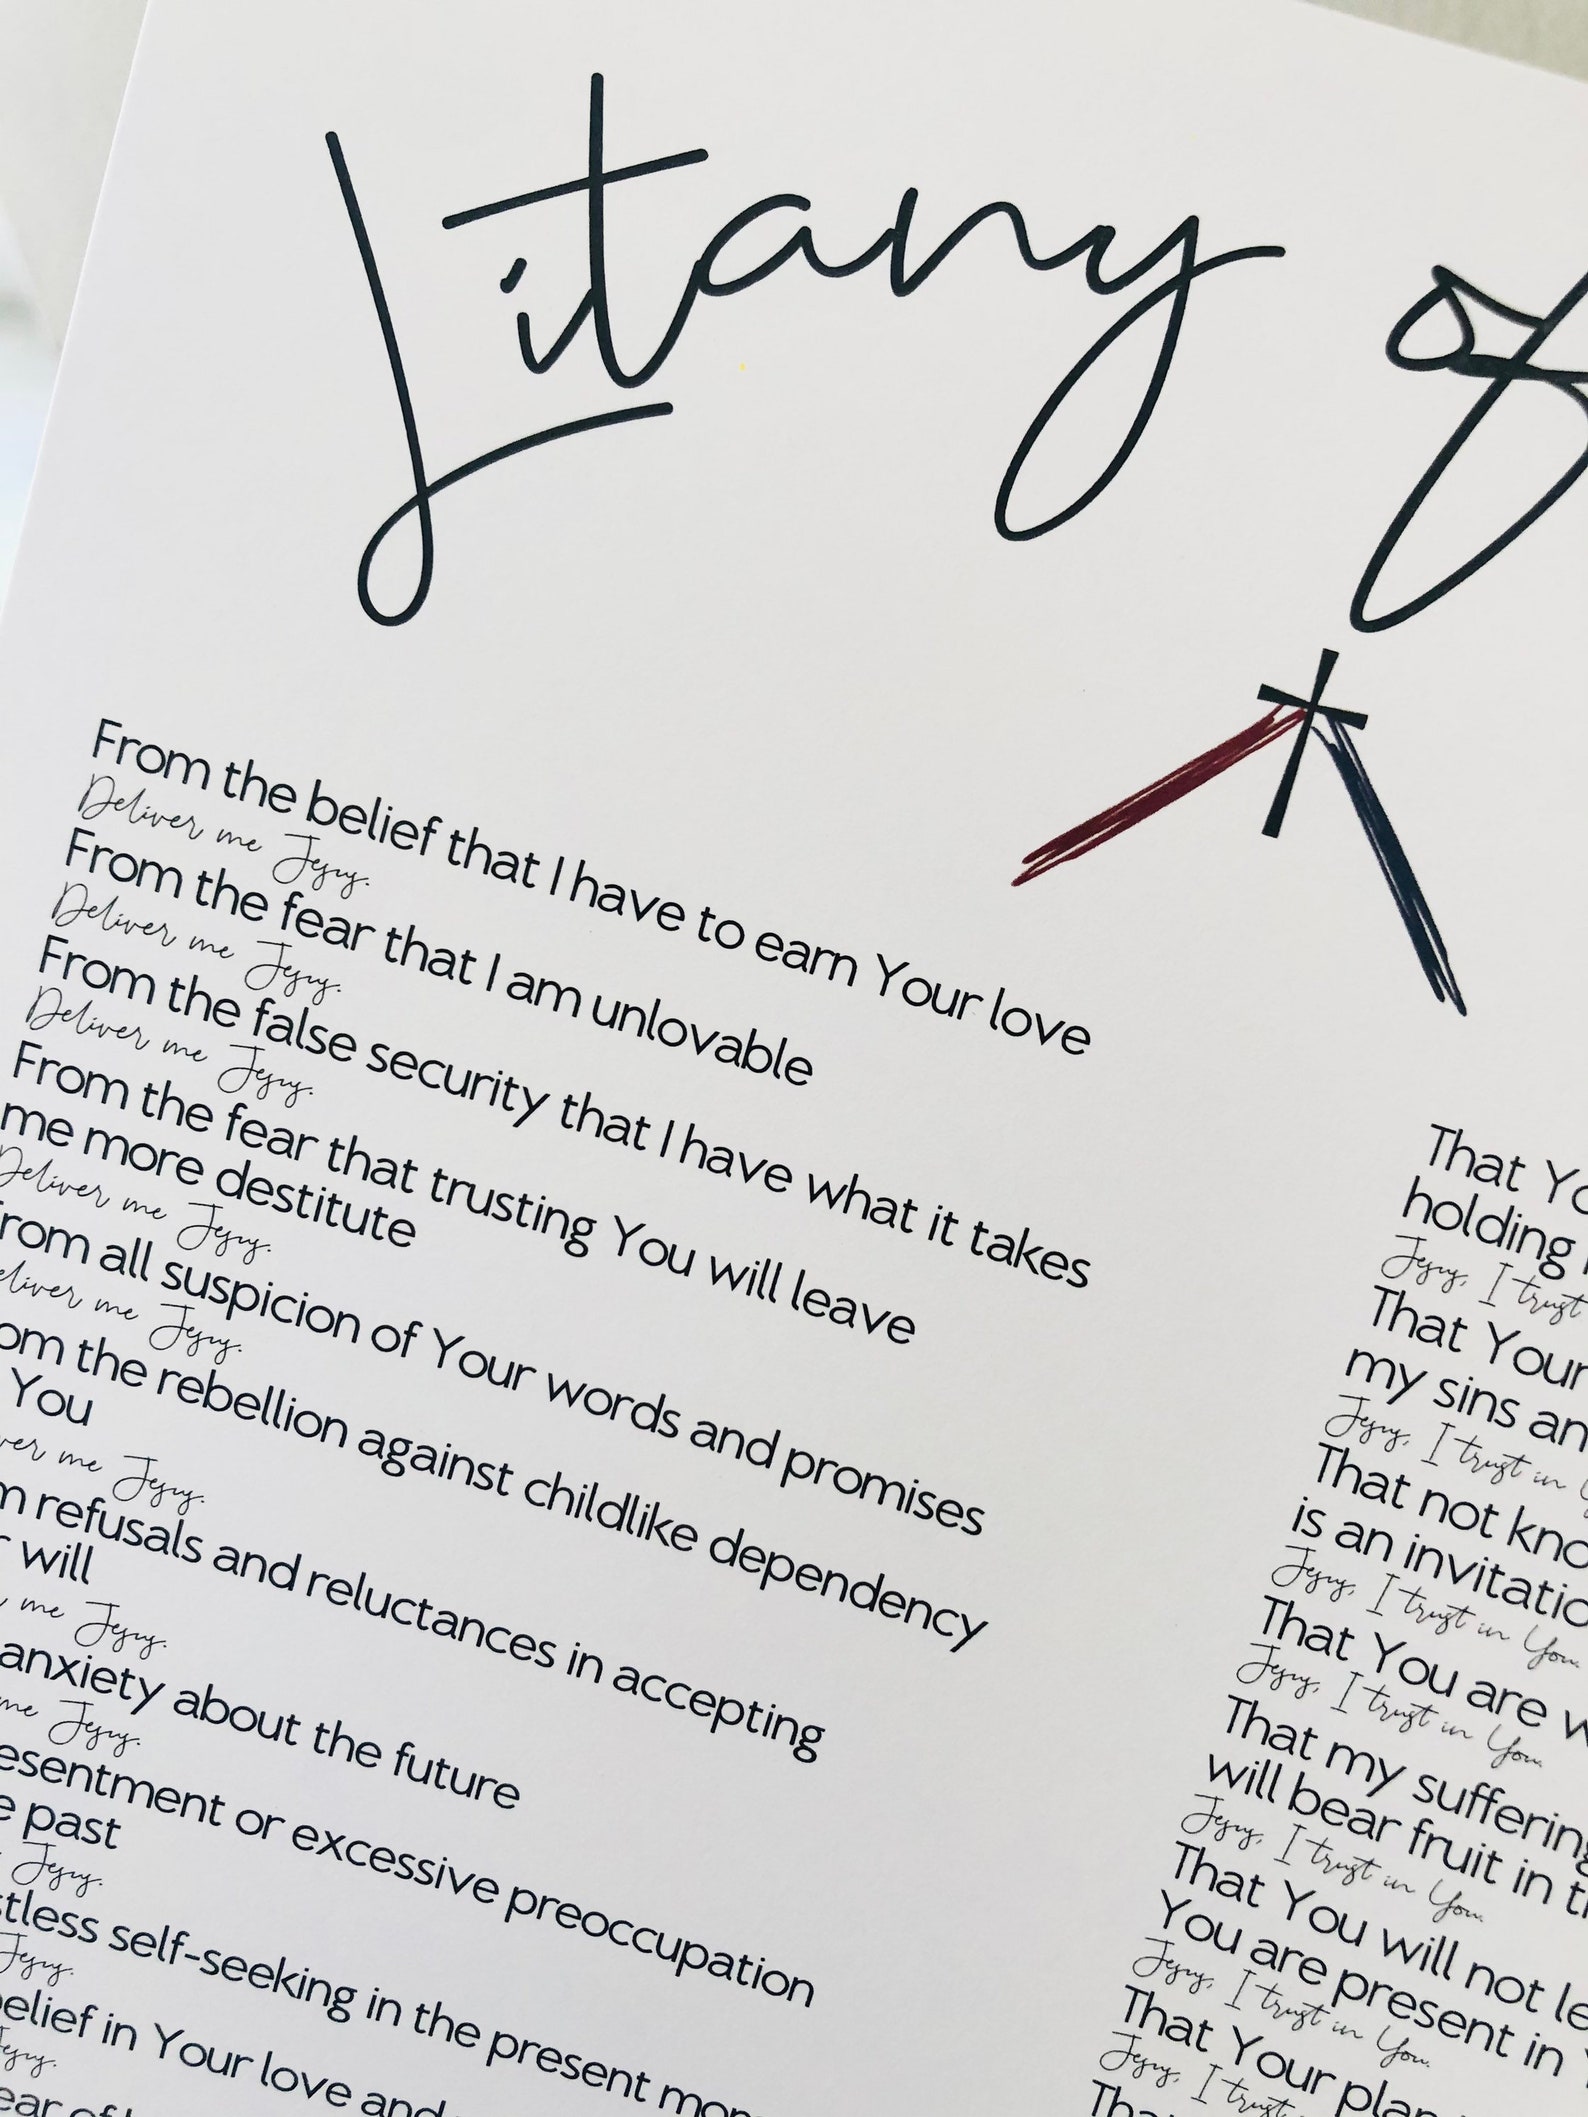 Litany of
From the belief that I have to earn Your love
Deliver me Jesus.
From the fear that I am unlovable
Deliver me Jesus.
From the false security that I have what it takes
Deliver me Jesus.
From the fear that trusting You will leave
me more destitute
Deliver me Jesus.
From all suspicion of Your words and promises
Deliver me Jesus.
the rebellion against childlike dependency
You
me Jesus.
refusals and reluctances in accepting
will
me Jesus.
anxiety about the future
me Jesus.
or excessive preoccupation
past
Jesus.
self-seeking in the present
Jesus.
in Your love and
Jesus.
That
holding
Jesus, I trust
That Your
my sins
Jesus, I trust in
That not
is an
Jesus, I trust in You.
That You are
Jesus, I trust in You.
That my suffering
will bear fruit in
Jesus, I trust in You.
That You will not
You are present in
Jesus, I trust in You.
That Your
Jesus, I trust